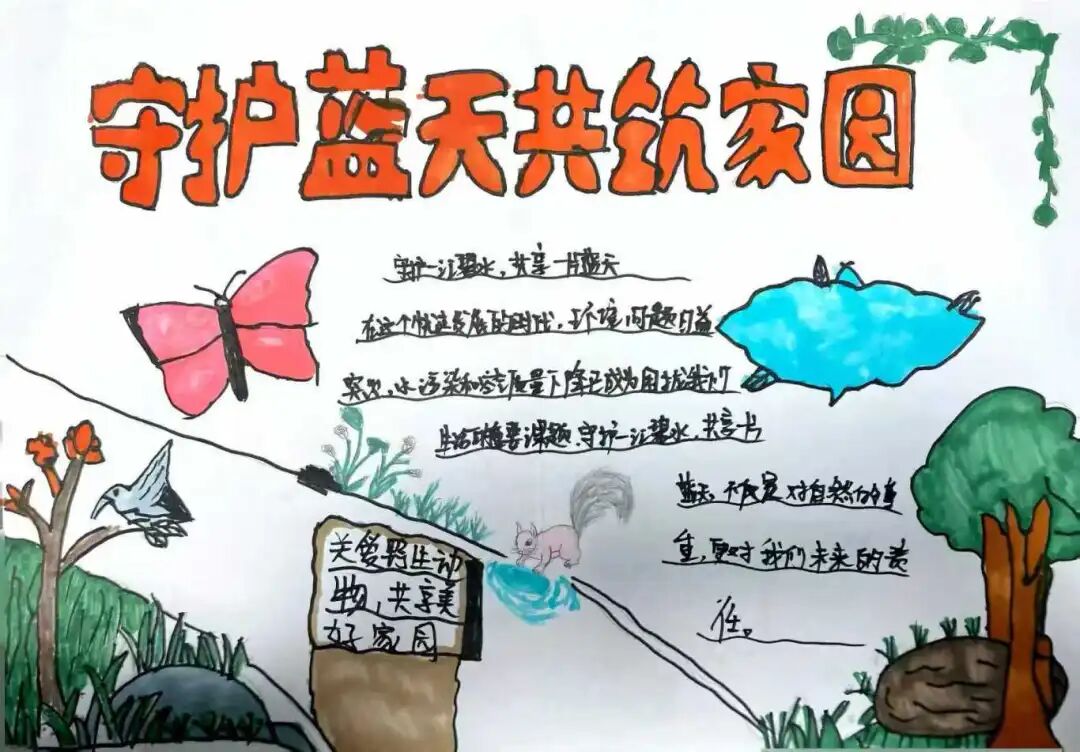 守护蓝天共筑家园
守护一江碧水，共享一片蓝天
在这个快速发展的时代，环境问题日益
突出，水污染和空气质量下降已成为困扰我们
生活的重要课题、守护一江碧水，共享一片
蓝天，不仅是对自然的尊
重，更对我们未来的责
任。
关爱野生动
物，共享美
好家园